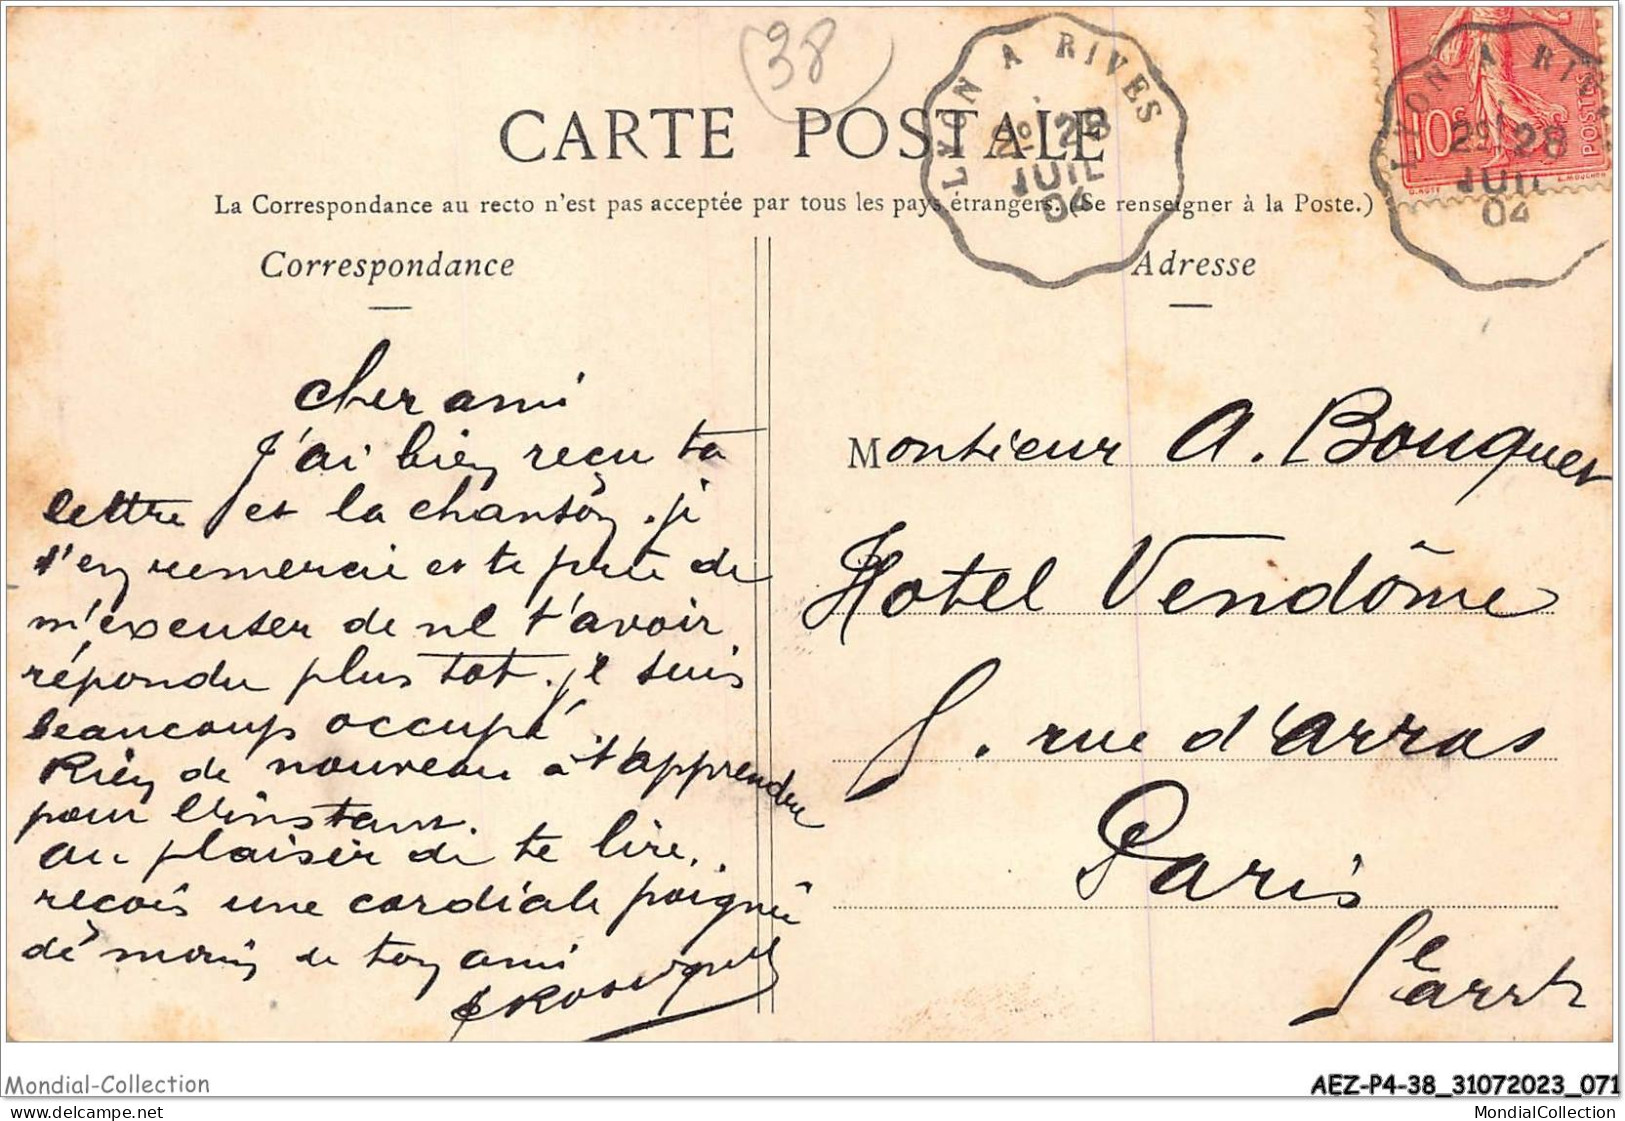 38
LYON A RIVES
2º 28
JUIL
04
LYON A RIVES
2º 28
JUIL
04
10c
POSTES
O. ROTY
L. MOUCHON
CARTE POSTALE
La Correspondance au recto n'est pas acceptée par tous les pays étrangers. (Se renseigner à la Poste.)
Correspondance
Adresse
Cher ami
J'ai bien reçu ta
lettre et la chanson. je
t'en remercie et te prie de
m'excuser de ne t'avoir
répondu plus tot. je suis
beaucoup occupé.
Rien de nouveau à t'apprendre
pour l'instant.
Au plaisir de te lire,.
reçois une cordiale poignée
de main de ton ami
Monsieur A. Bouquet
Hotel Vendôme
5. rue d'arras
Paris
5e arrt
Mondial-Collection
AEZ-P4-38_31072023_071
delcampe.net
MondialCollection